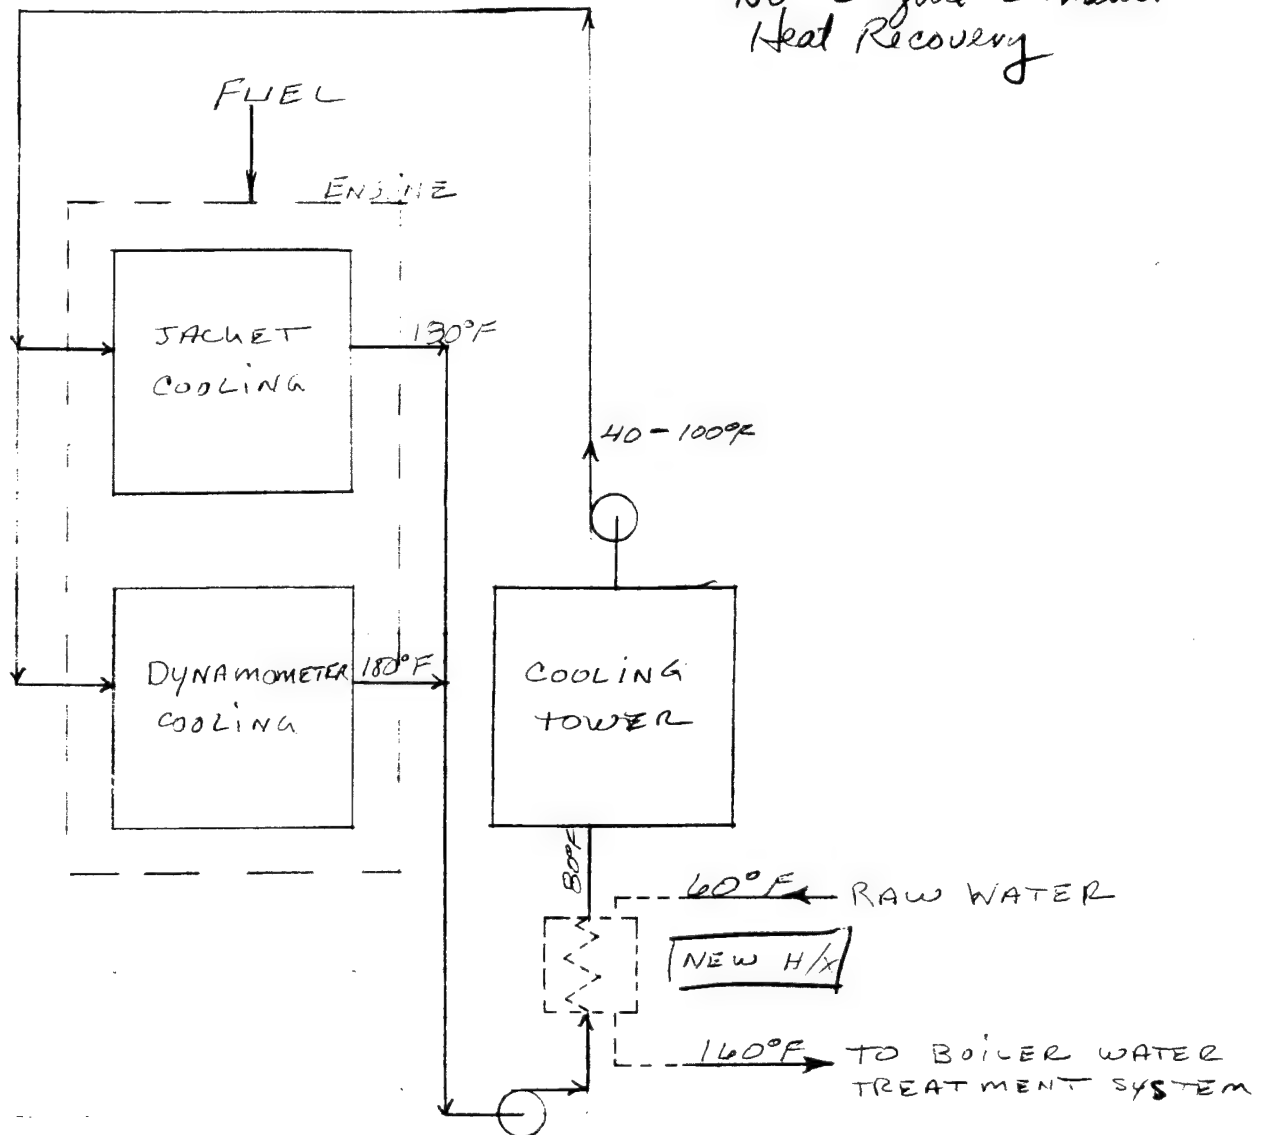 Heat Recovery
FUEL
ENGINE
JACKET
COOLING
130°F
40-100°F
DYNAMOMETER
COOLING
180°F
COOLING
TOWER
80°F
60°F
RAW WATER
NEW H/X
160°F
TO BOILER WATER
TREATMENT SYSTEM